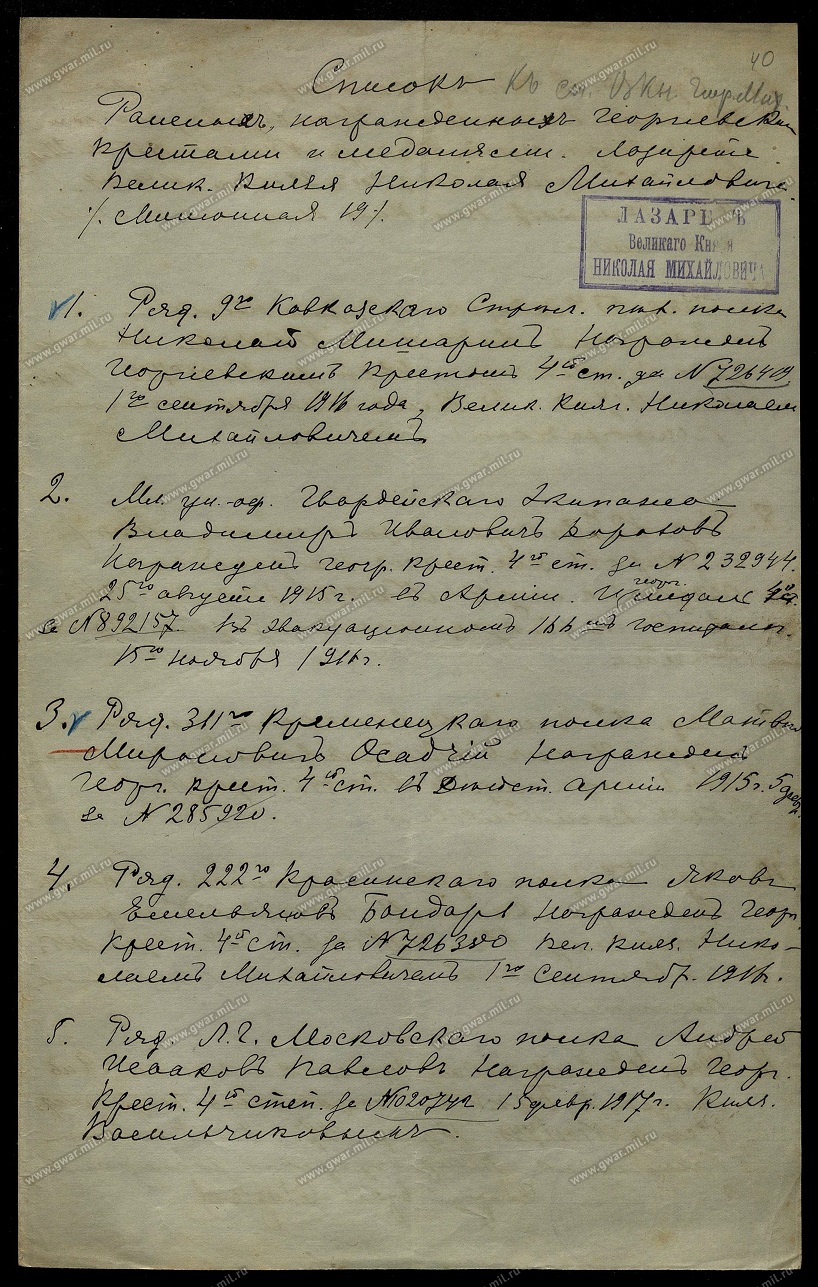 40
Списокъ
Раненыхъ, награжденныхъ Георгіевскими
крестами и медалями. Лазаретъ
Велик. Князя Николая Михайловича
/. Милліонная 19 /.
ЛАЗАРЕТЪ
Великаго Князя
НИКОЛАЯ МИХАЙЛОВИЧА
1. Ряд. 9го Кавказскаго Стрѣл. полка
Николай Награжденъ
Георгіевскимъ Крестомъ 4ой ст. за N 726409
1го сентября 1916 года, Велик. Княз. Николаемъ
Михайловичемъ
2. Мл. ун.-оф. Гвардейскаго Экипажа
Владимиръ Ивановичъ
Награжденъ георг. крест. 4ой ст. за N 232944.
25го августа 1915 г. въ Арміи. И георг. медаль 4ой
за N 892157 въ эвакуаціонномъ госпиталѣ.
15го ноября 1916 г.
3. Ряд. 311го Кременецкаго полка Матвѣй
Мироновичъ Осадчій Награжденъ
Георг. крест. 4ой ст. въ Дѣйст. арміи 1915 г. 5
за N 285920.
4. Ряд. 222го Краснинскаго полка Яковъ
Емельяновъ Бондарь Награжденъ Георг.
Крест. 4ой ст. за N 726380 Вел. Княз. Нико-
лаемъ Михайловичемъ 1го Сентябр. 1916 г.
5. Ряд. Л. Г. Московскаго полка Андрей
Исааковъ Павловъ Награжденъ Георг.
Крест. 4ой степ. за 15 февр. 1917 г. Княз.
Васильчиковымъ.
www.gwar.mil.ru